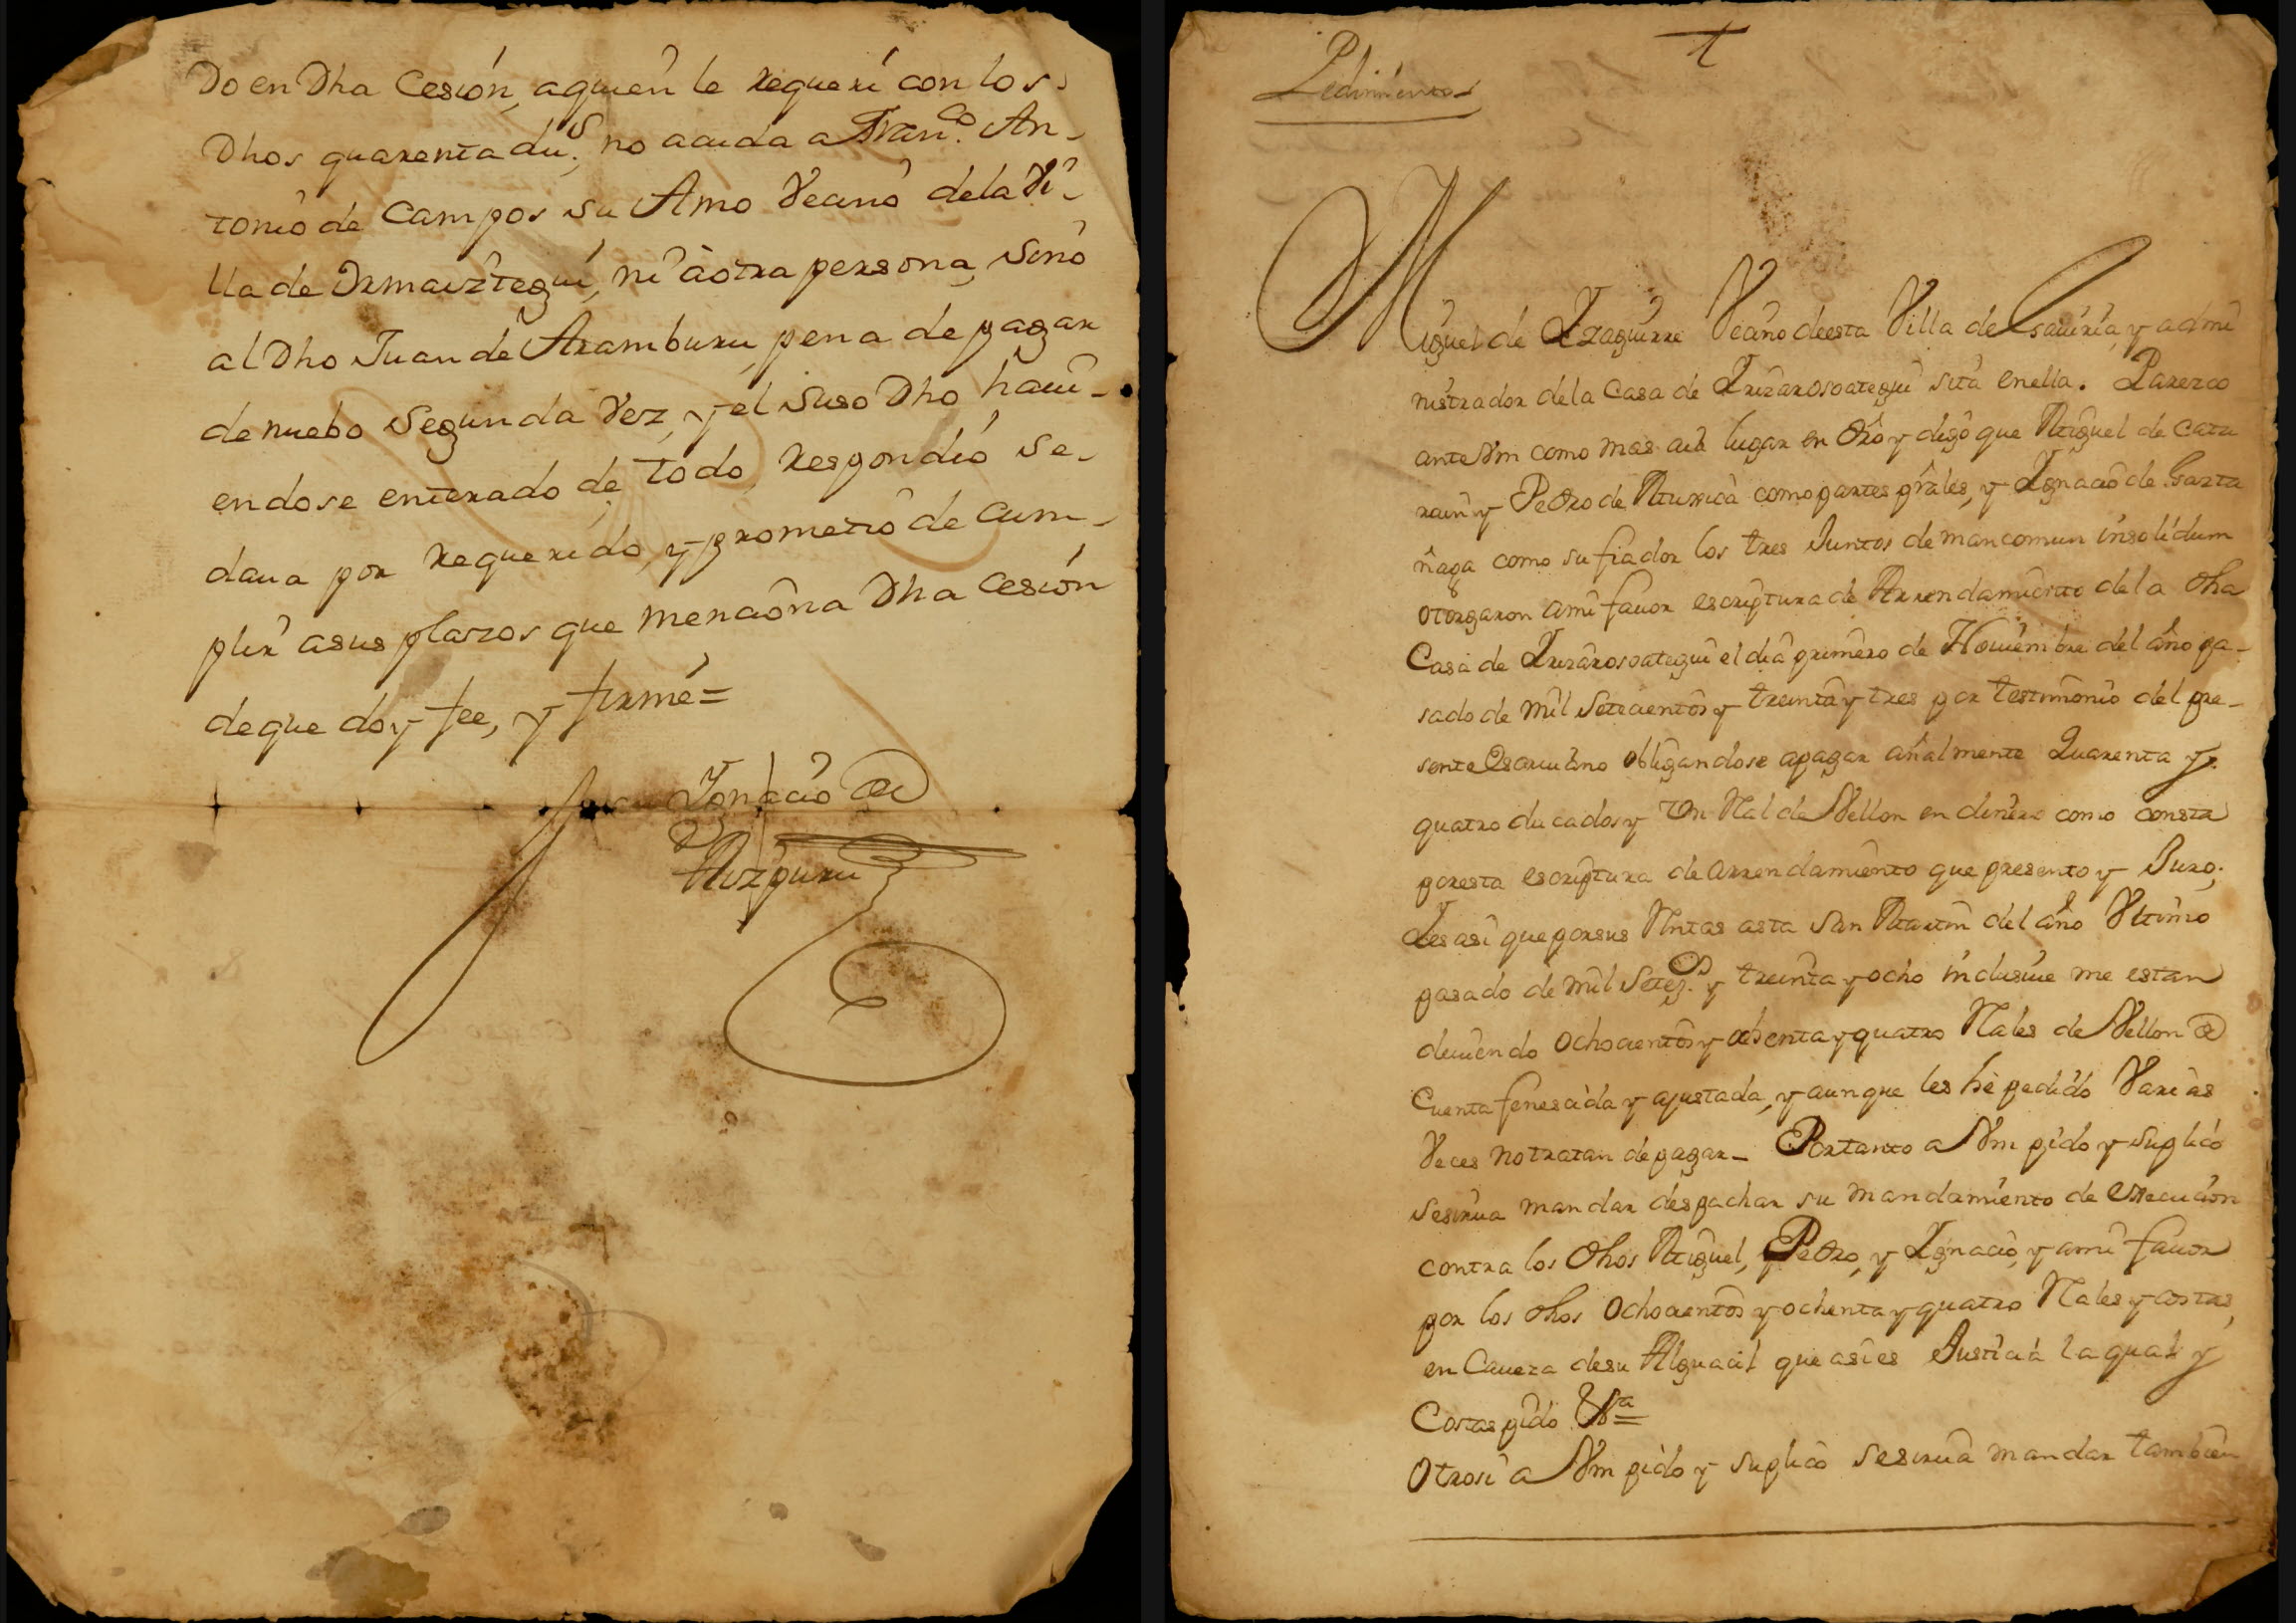 Do en Dha Cesión, aquien le requerí con los
Dhos quarenta du.s, no acuda a Fran.co An-
tonio de Campos su Amo Vecino dela Vi-
lla de Ormaiztegui, ni à otra persona, sino
al Dho Juan de Aramburu, pena de pagar
de nuebo Segunda Vez, y el Suso Dho haui-
endose enterado de todo, respondió se
daua por requerido, y prometio de cum-
plir a sus plazos que menciona Dha Cesión
de que doy fee, y firmé=
Juan Ignacio de
Aizpuru
Pedimento
Miguel de Yzaguirre Vecino de esta Villa de Segura, y admi
nistrador dela Casa de Yrizarosoategui sita en ella. Parezco
ante Vm como mas aia lugar en Dro y digo que Miguel de
y Pedro de Muxica como partes prâles, y Ygnacio de Gazta
ñaga como su fiador los tres Juntos de mancomun insolidum
otorgaron a mi fauor escriptura de Arrendamiento dela dha
Casa de Yrizarosoategui el dia primero de Nouiembre del año pa-
sado de mil Setecientos y treinta y tres por testimonio del pre-
sente Escriuano obligandose a pagar añalmente Quarenta y
quatro ducados y Un Real de Vellon en dinero como consta
por esta escriptura de arrendamiento que presento y Juro;
Y es asi que por sus Rentas asta San Martin del año Vltimo
pasado de mil Setez.s y treinta y ocho inclusiue me estan
deuiendo Ochocientos y ochenta y quatro Reales de Vellon de
Cuenta fenescida y ajustada, y aunque les hè pedido Varias
Veces no tratan de pagar_ Portanto a Vm pido y suplico
se sirua mandar despachar su mandamiento de execucion
contra los dhos Miguel, Pedro, y Ygnacio, y a mi fauor
por los dhos Ochocientos y ochenta y quatro Reales y costas,
en Caueza de su Alguacil que asi es Justicia la qual y
Costas pido
Otrosi a Vm pido y suplico se sirua mandar tambien